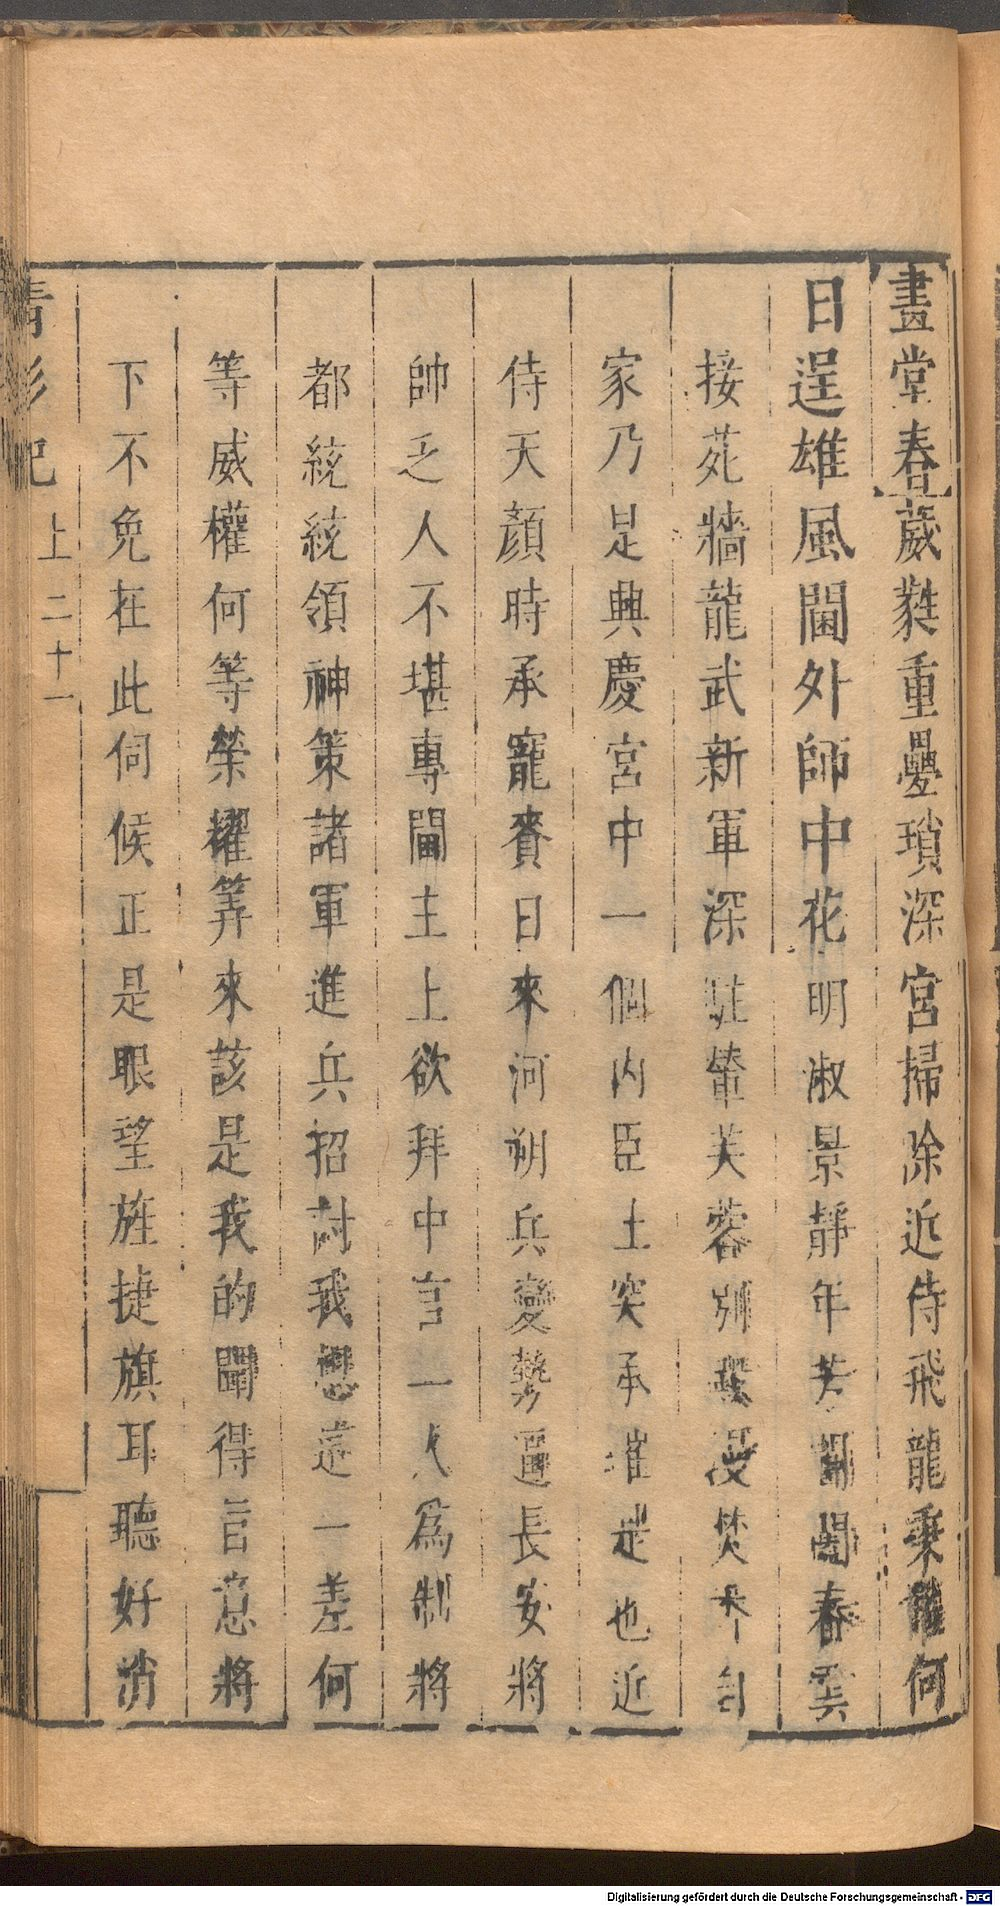 畫堂春葳蕤重疊瑣深宮掃除近侍飛龍乘龍何
日逞雄風閫外師中花明淑景靜年芳闌闔春雲
接苑牆龍武新軍深駐輦芙蓉別殿漫焚香自
家乃是興慶宮中一個內臣土突承璀是也近
侍天顏時承寵賚日來河朔兵變勢逼長安將
帥乏人不堪專閫主上欲拜中官一人為制將
都統統領神策諸軍進兵招討我想這一差何
等威權何等榮耀筭來該是我的聞得官意將
下不免在此伺候正是眼望旌捷旗耳聽好消
青衫記 上 二十一
Digitalisierung gefördert durch die Deutsche Forschungsgemeinschaft - DFG